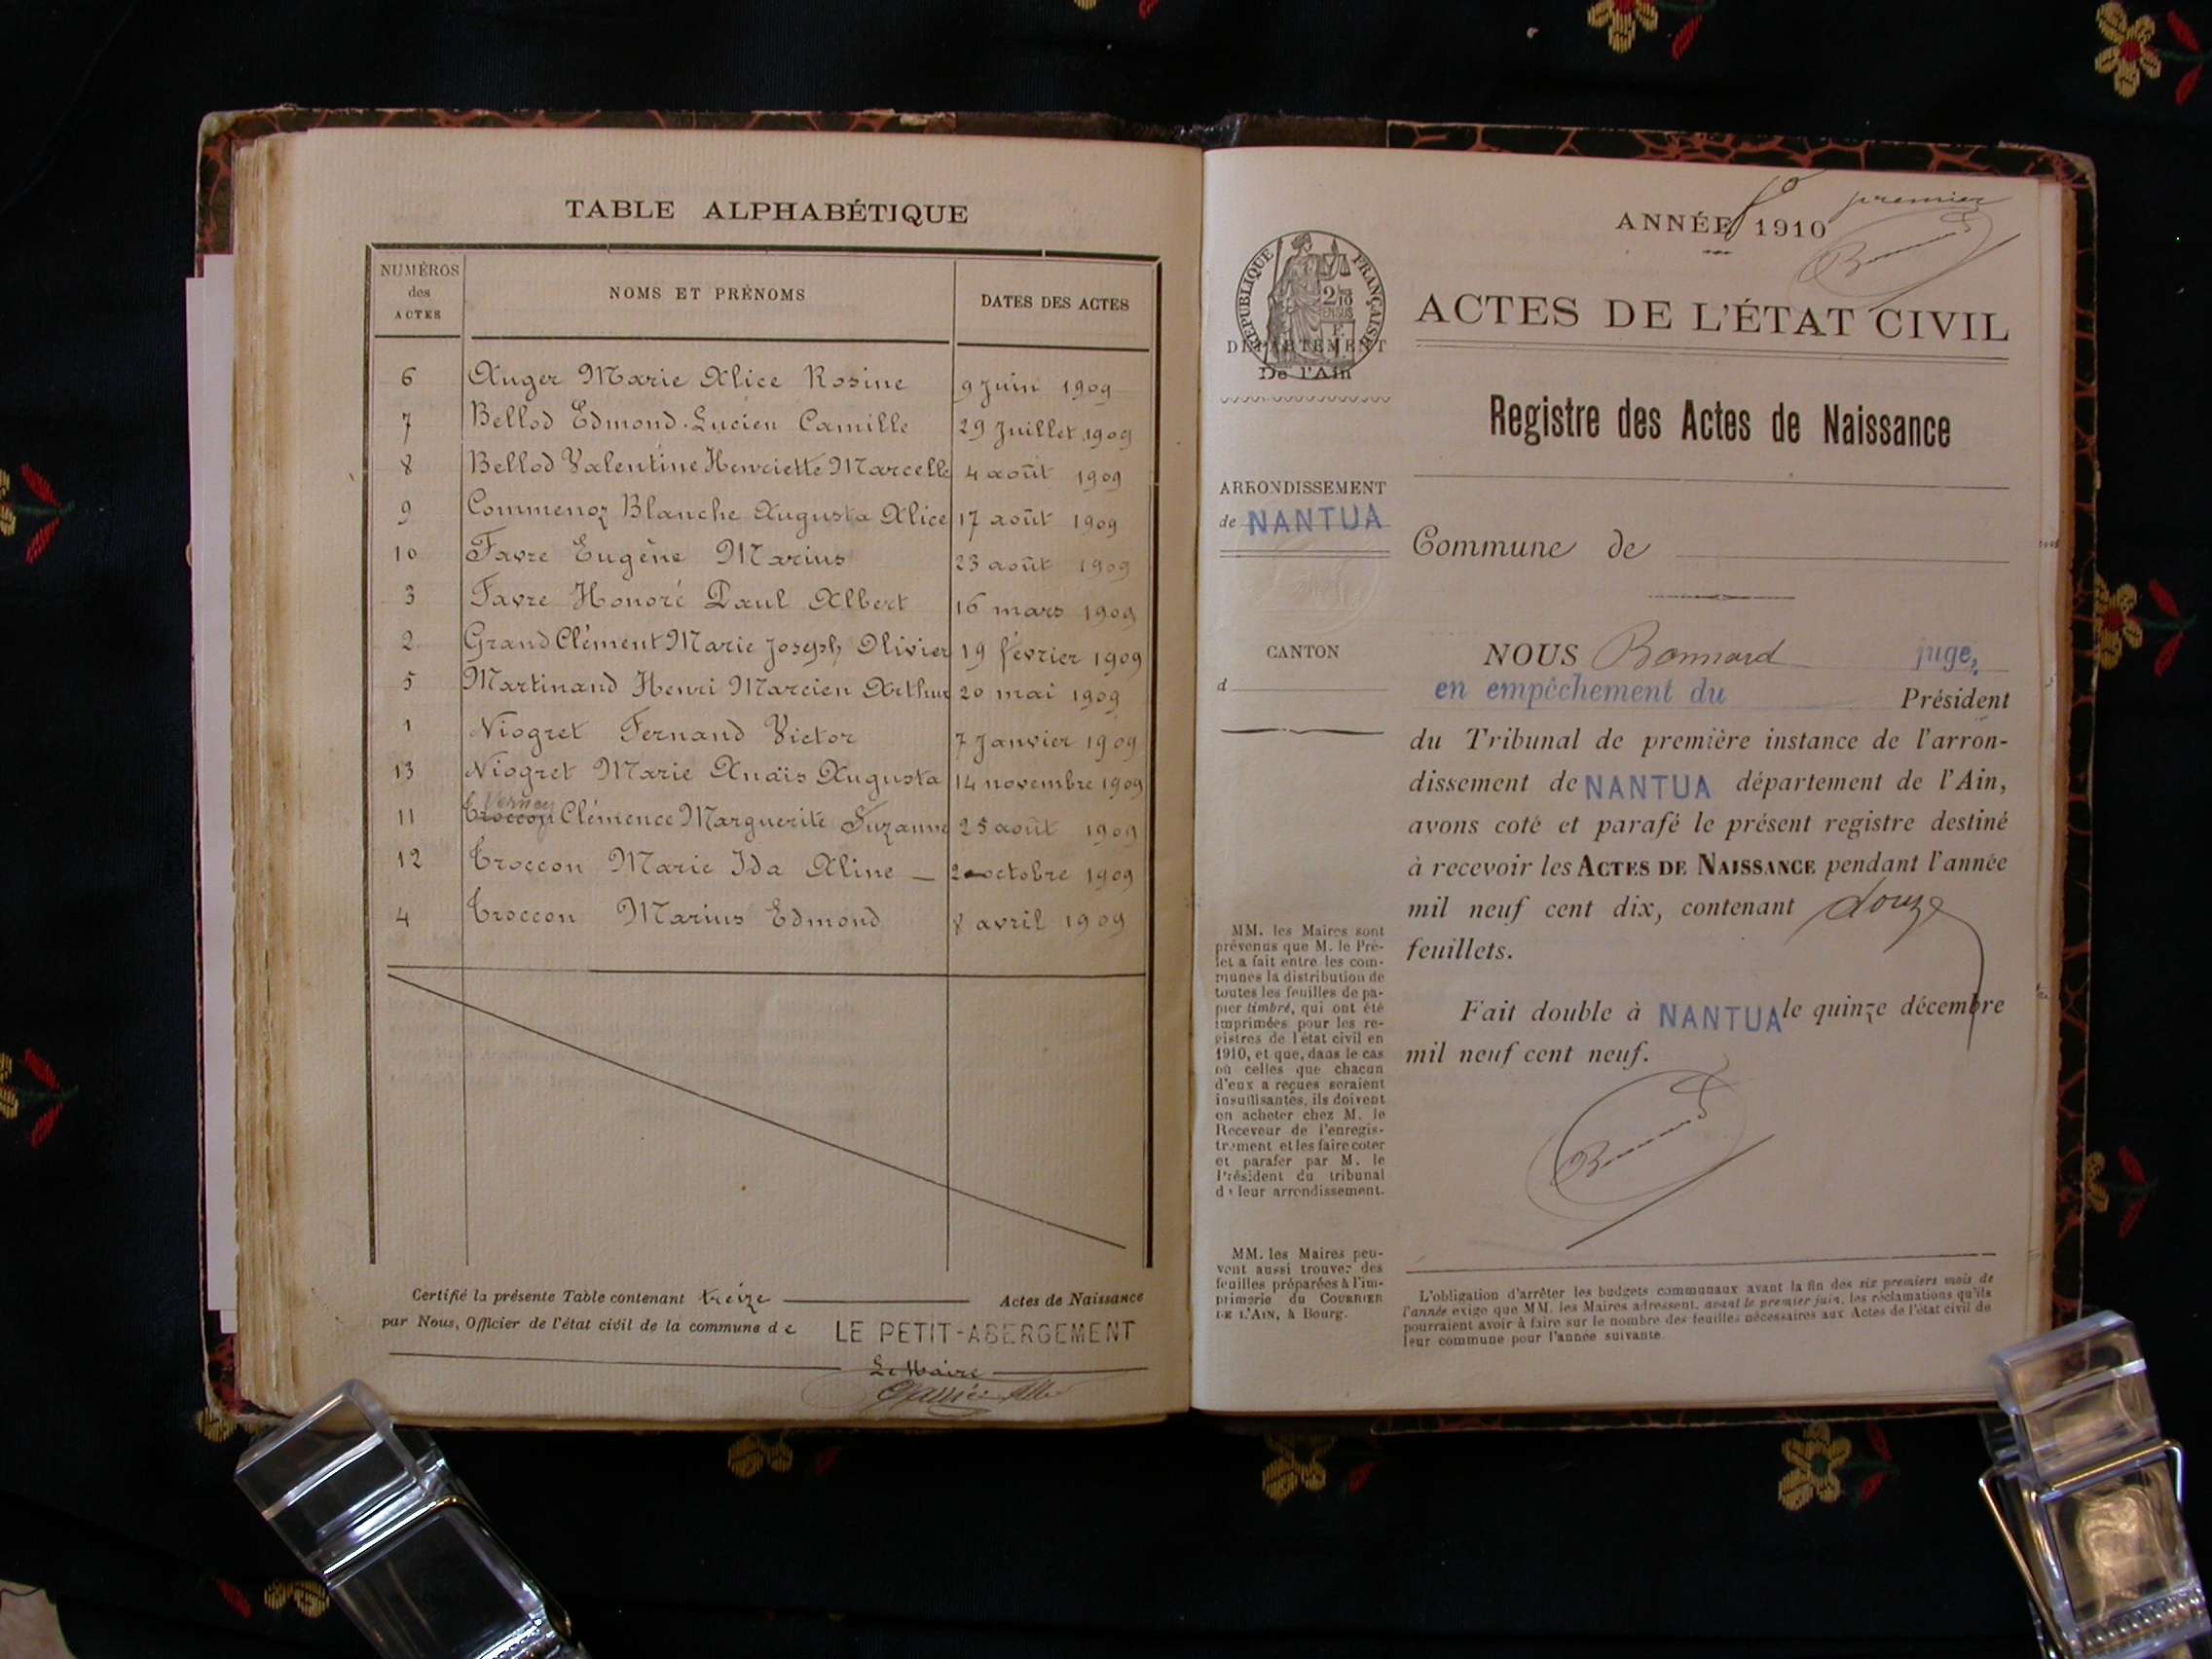 TABLE ALPHABÉTIQUE
NUMÉROS des ACTES NOMS ET PRÉNOMS DATES DES ACTES
6 Auger Marie Alice Rosine 9 Juin 1909
7 Bellod Edmond Lucien Camille 29 Juillet 1909
8 Bellod Valentine Henriette Marcelle 4 août 1909
9 Commenoz Blanche Augusta Alice 17 août 1909
10 Favre Eugène Marius 23 août 1909
3 Favre Honoré Paul Albert 16 mars 1909
2 Grand Clément Marie Joseph Olivier 19 février 1909
5 Martinand Henri Marcien Arthur 20 mai 1909
1 Niogret Fernand Victor 7 Janvier 1909
13 Niogret Marie Anaïs Augusta 14 novembre 1909
11 Troccon Clémence Marguerite Suzanne 25 août 1909
12 Troccon Marie Ida Aline 2 octobre 1909
4 Troccon Marius Edmond 8 avril 1909
Certifié la présente Table contenant treize Actes de Naissance
par Nous, Officier de l'état civil de la commune de LE PETIT-ABERGEMENT
Le Maire
fo premier
ANNÉE 1910
RÉPUBLIQUE FRANÇAISE
ACTES DE L'ÉTAT CIVIL
DÉPARTEMENT
De l'Ain
Registre des Actes de Naissance
ARRONDISSEMENT
de NANTUA
Commune de
CANTON
d
NOUS Bonnard juge,
en empêchement du Président
du Tribunal de première instance de l'arron-
dissement de NANTUA département de l'Ain,
avons coté et parafé le présent registre destiné
à recevoir les ACTES DE NAISSANCE pendant l'année
mil neuf cent dix, contenant douze
feuillets.
Fait double à NANTUA le quinze décembre
mil neuf cent neuf.
MM. les Maires sont
prévenus que M. le Pré-
fet a fait entre les com-
munes la distribution de
toutes les feuilles de pa-
pier timbré, qui ont été
imprimées pour les re-
gistres de l'état civil en
1910, et que, dans le cas
où celles que chacun
d'eux a reçues seraient
insuffisantes, ils doivent
en acheter chez M. le
Receveur de l'enregis-
trement et les faire coter
et parafer par M. le
Président du tribunal
de leur arrondissement.
MM. les Maires peu-
vent aussi trouver des
feuilles préparées à l'im-
primerie du COURRIER
DE L'AIN, à Bourg.
L'obligation d'arrêter les budgets communaux avant la fin des six premiers mois de
l'année exige que MM. les Maires adressent, avant le premier juin, les réclamations qu'ils
pourraient avoir à faire sur le nombre des feuilles nécessaires aux Actes de l'état civil de
leur commune pour l'année suivante.